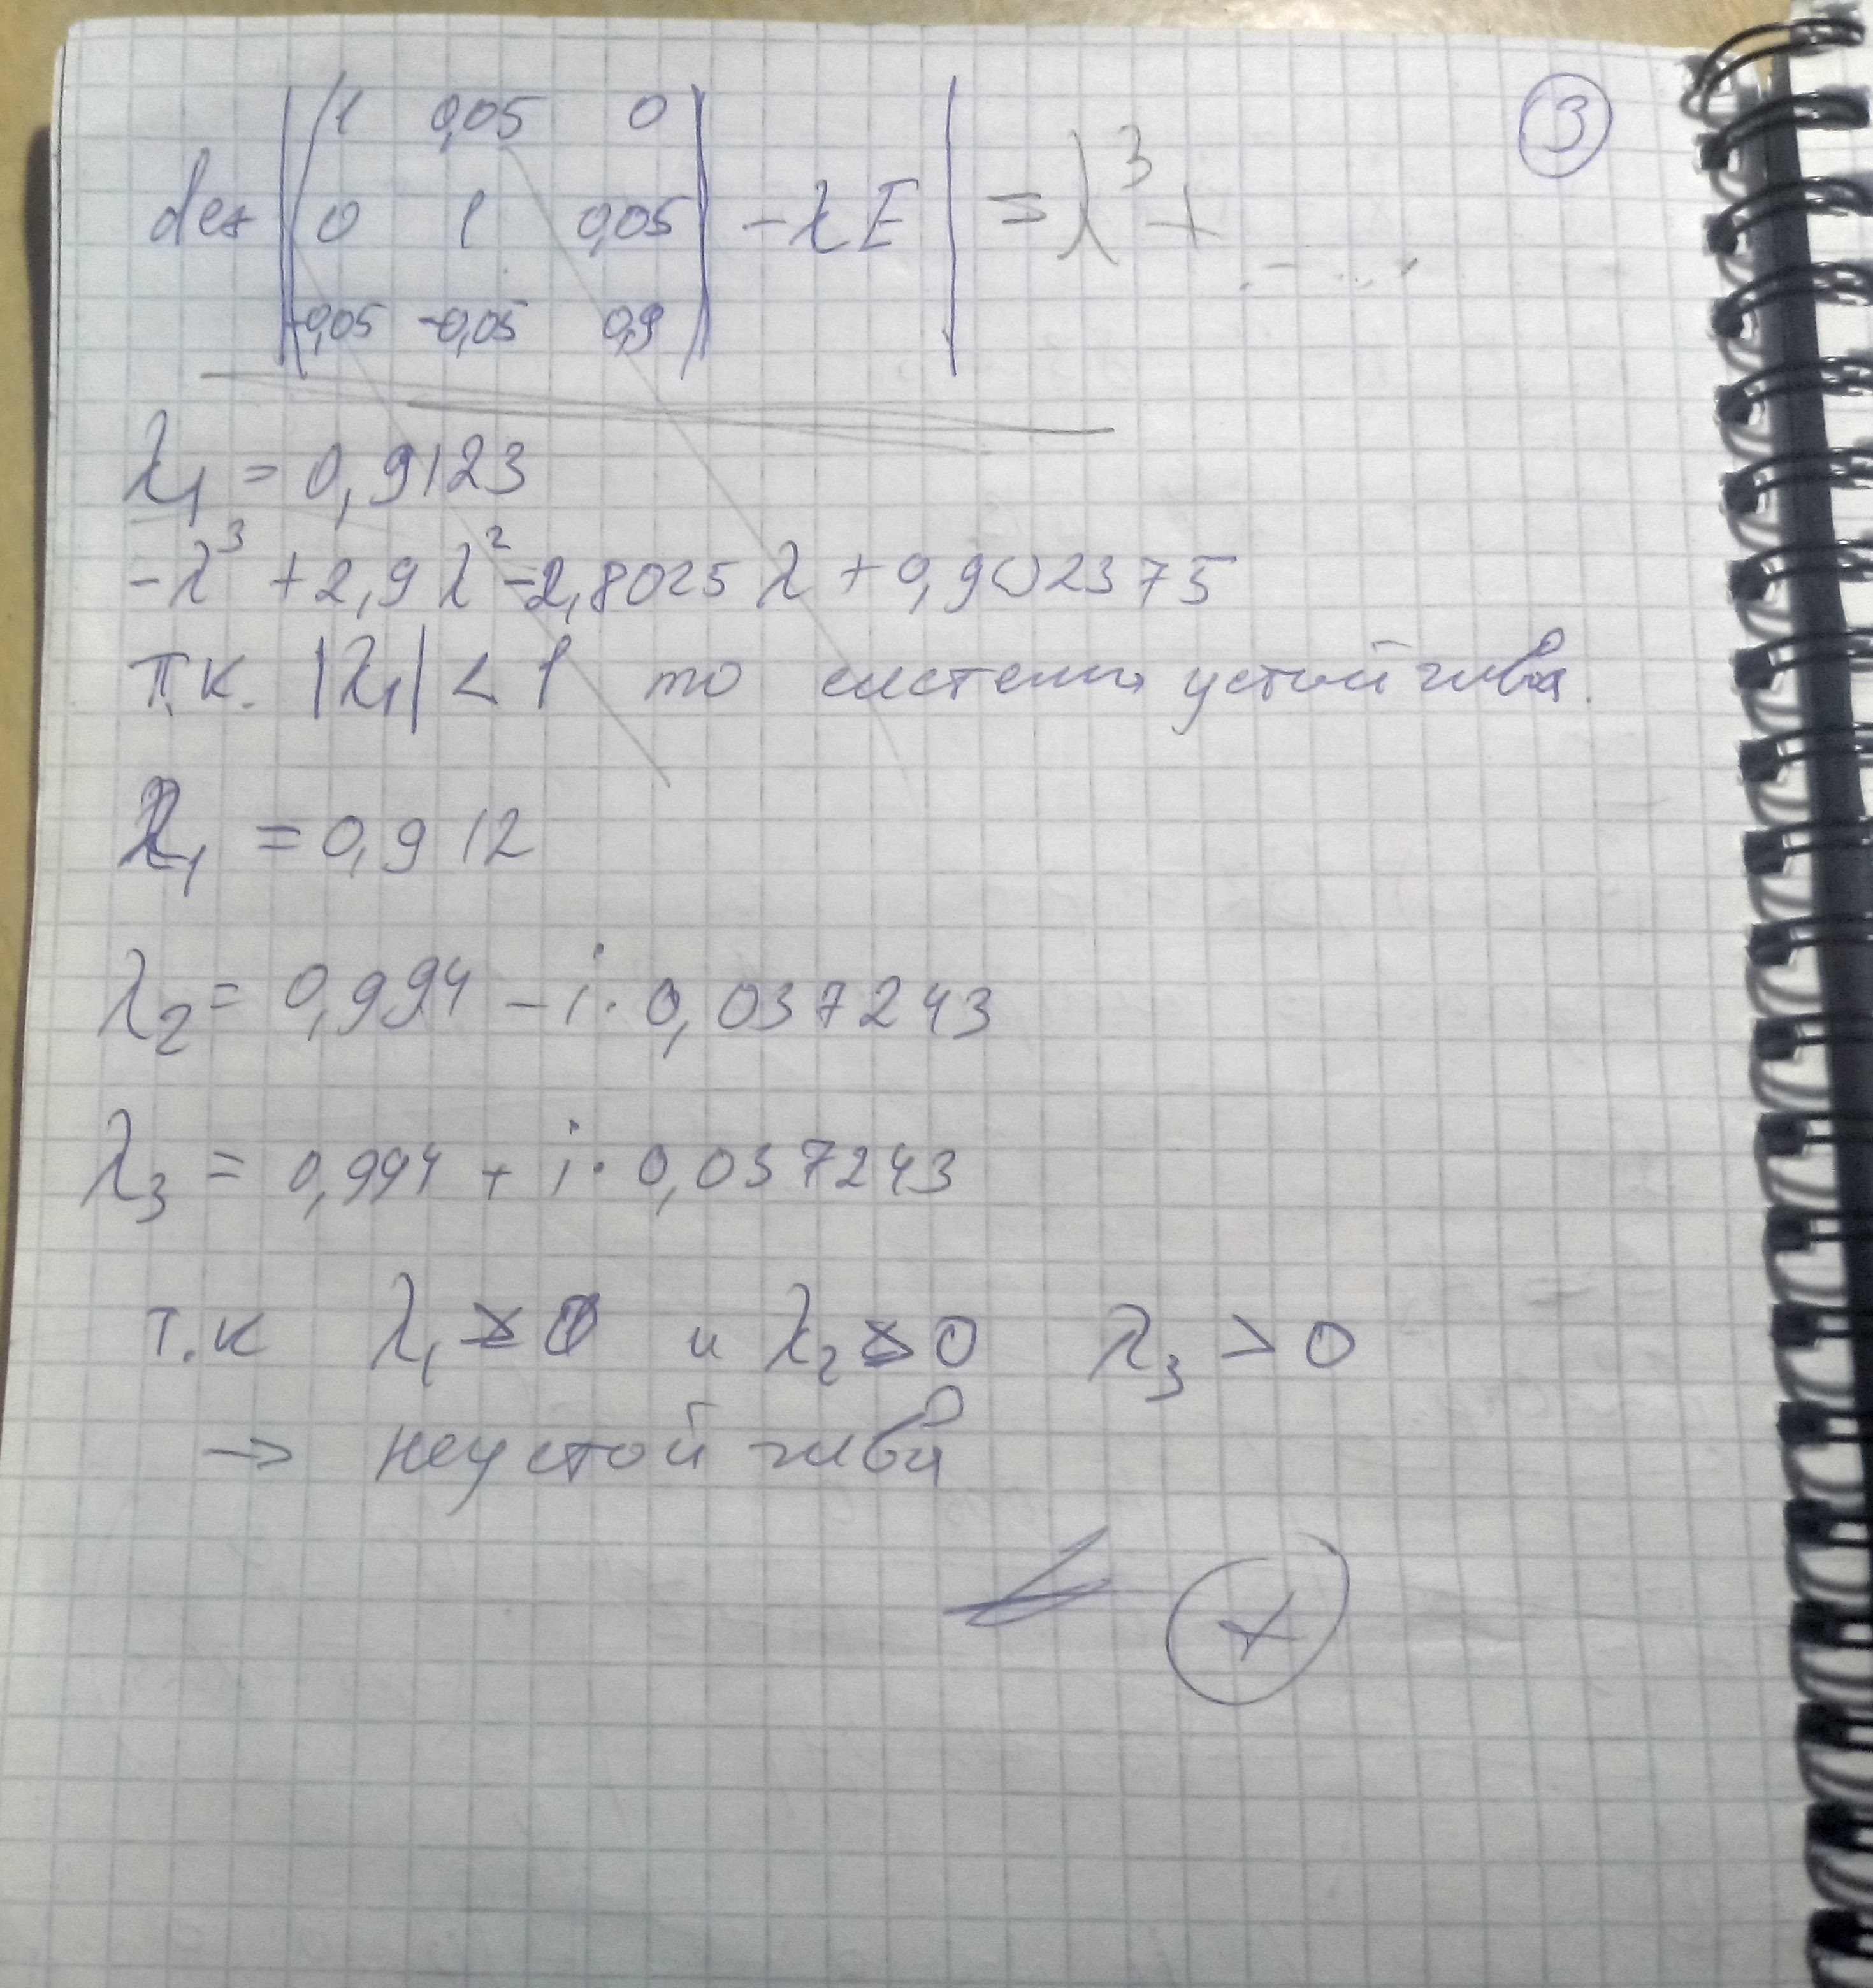 3
1 0,05 0
det 0 1 0,05 - λE = λ³ +
-0,05 -0,05 0,9
λ₁ = 0,9123
-λ³ + 2,9λ² - 2,8025 λ + 0,902375
т.к. |λ₁| < 1 то система устойчива.
λ₁ = 0,912
λ₂ = 0,994 - i · 0,037243
λ₃ = 0,994 + i · 0,037243
т.к λ₁ > 0 и λ₂ > 0 λ₃ > 0
→ неустойчива
+